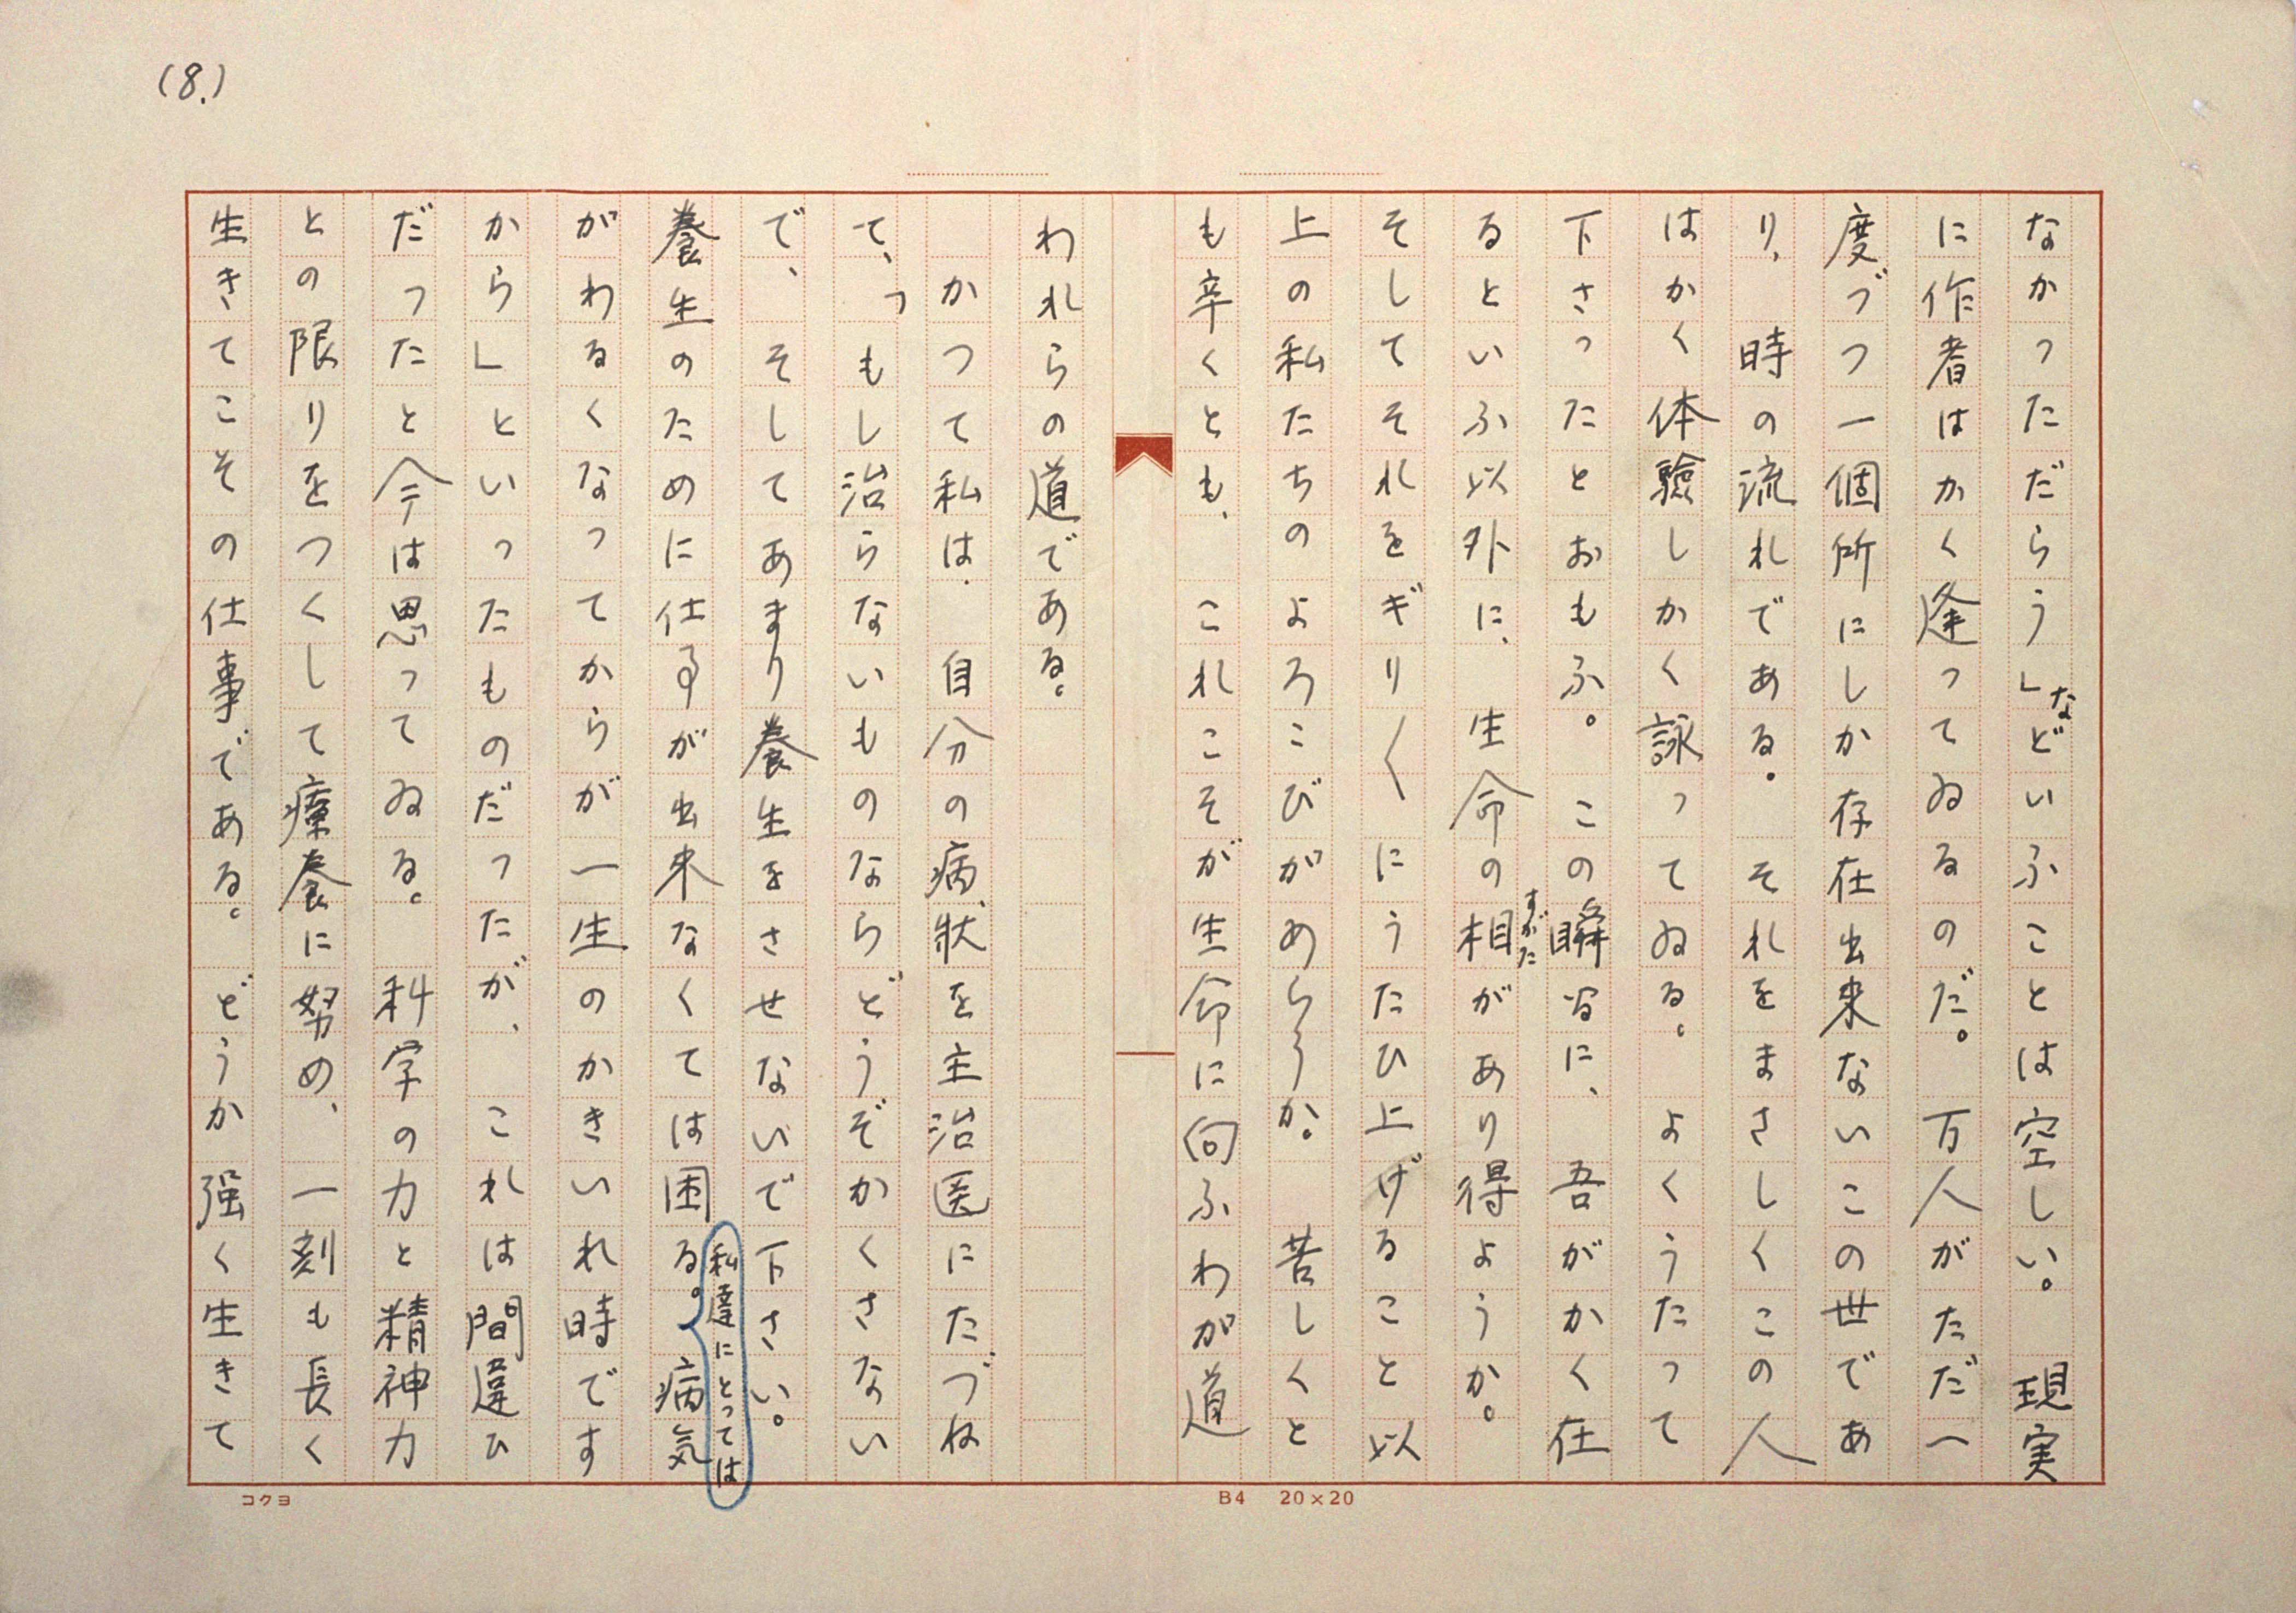 (8.)
なかっただらう」などいふことは空しい。　現実
に作者はかく逢ってゐるのだ。　万人がただ一
度づつ一個所にしか存在出来ないこの世であ
り、時の流れである。　それをまさしくこの人
はかく体験しかく詠ってゐる。　よくうたって
下さったとおもふ。　この瞬間に、　吾がかく在
るといふ以外に、　生命の相がすがたあり得ようか。
そしてそれをギリ〱にうたひ上げること以
上の私たちのよろこびがあらうか。　苦しくと
も辛くとも、　これこそが生命に向ふわが道
われらの道である。
　かつて私は、自分の病状を主治医にたづね
て、「もし治らないものならどうぞかくさない
で、そしてあまり養生をさせないで下さい。
私達にとっては
養生のために仕事が出来なくては困る。　病気
がわるくなってからが一生のかきいれ時です
から」といったものだったが、　これは間違ひ
だったと今は思ってゐる。　科学の力と精神力
との限りをつくして療養に努め、　一刻も長く
生きてこその仕事である。　どうか強く生きて
コクヨ
B4　20×20